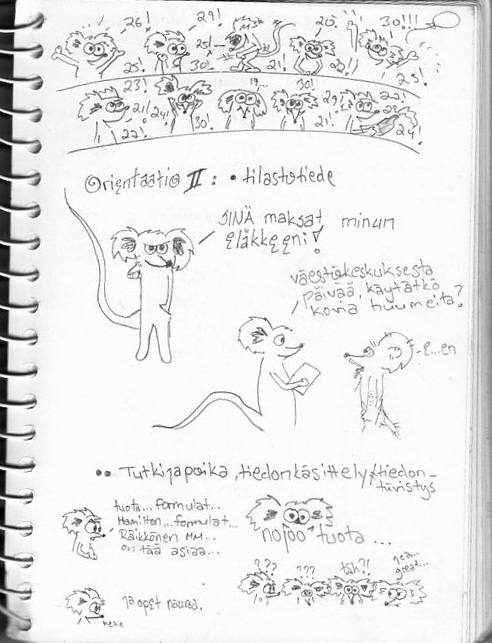 26! 29! 20. 30!!!
25! 25! 30! 21! 22!! 23!
23! 19... 30! 22!
21! 24! 29!
22! 30! 21! 24!
Orientaatio II: • tilastotiede
SINÄ maksat minun
eläkkeeni!
väestökeskuksesta
päivää, käytätkö
kovia huumeita?
-E...en
•• Tutkijapoika, tiedonkäsittely/tiedon-
tiivistys
tuota... formulat...
Hamilton... formulat...
Räikkönen MM...
on tää asiaa...
nojoo tuota ...
??? ??? täh?! yea...
great...
ja opet nauraa.
hehe